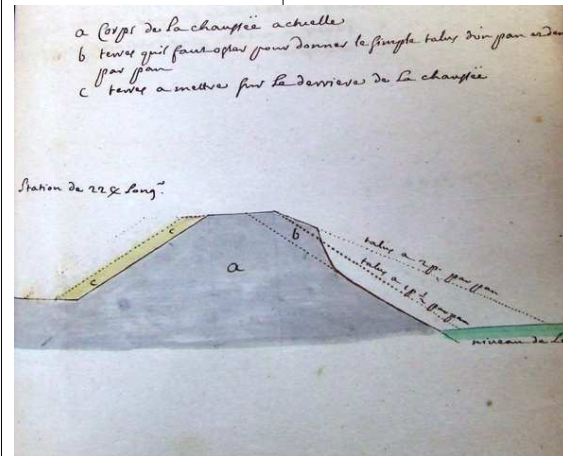 a Corps de la chaussée actuelle
b terres qu'il faut oster pour donner le simple talus d'un pan et de
par pan
c terres a mettre sur le derriere de la chaussée
Station de 22 Long
c
b
a
c
talus a 2 p. par pan
talus a 1 p. ½ par pan
niveau de